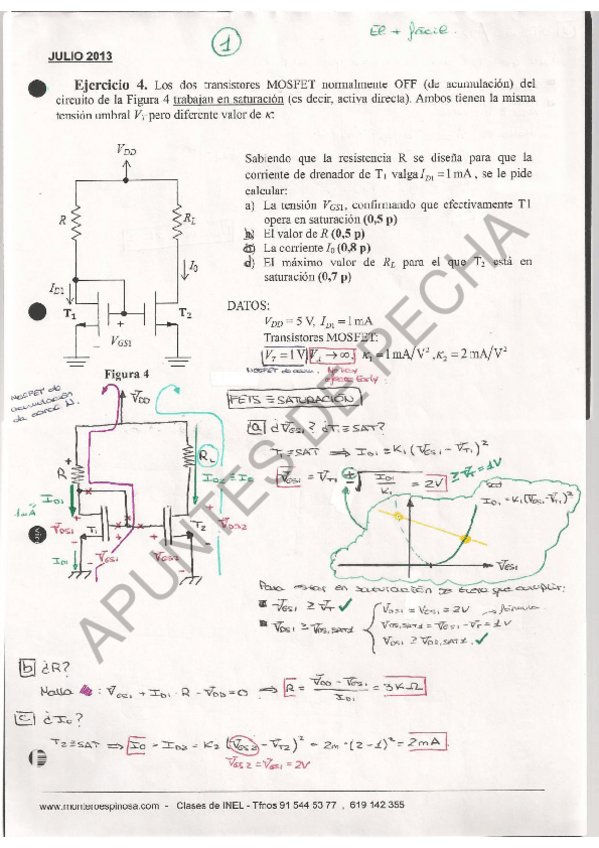 1
El + fácil.
JULIO 2013
Ejercicio 4. Los dos transistores MOSFET normalmente OFF (de acumulación) del
circuito de la Figura 4 trabajan en saturación (es decir, activa directa). Ambos tienen la misma
tensión umbral V_t pero diferente valor de κ:
V_DD
R
R_L
I_0
I_D1
T_1
T_2
+
V_GS1
-
Figura 4
Sabiendo que la resistencia R se diseña para que la
corriente de drenador de T_1 valga I_D1 = 1 mA, se le pide
calcular:
a) La tensión V_GS1, confirmando que efectivamente T1
opera en saturación (0,5 p)
b) El valor de R (0,5 p)
c) La corriente I_0 (0,8 p)
d) El máximo valor de R_L para el que T_2 está en
saturación (0,7 p)
DATOS:
V_DD = 5 V, I_D1 = 1 mA
Transistores MOSFET:
V_T = 1 V V_A → ∞, κ_1 = 1 mA/V², κ_2 = 2 mA/V²
MOSFET de acum. No hay efecto Early
MOSFET de
acumulación
de canal N.
V_DD
R
R_L
I_D1
1mA
I_D2 = I_0
V_DS1
T_1
T_2
V_DS2
I_D1
V_GS1
V_GS2
FETS ≡ SATURACIÓN
a ¿V_GS1? ¿T_1 ≡ SAT?
T_1 ≡ SAT ⟹ I_D1 = K_1 (V_GS1 - V_T1)²
V_GS1 = V_T1 ± √(I_D1/K_1) = 2V ≥ V_T = 1V
Sat
I_D1 = K_1 (V_GS1 - V_T)²
V_GS1
Para estar en saturación se tiene que cumplir:
V_GS1 ≥ V_T ✓
V_DS1 ≥ V_DS,SAT1
V_DS1 = V_GS1 = 2V → fórmula.
V_DS,SAT1 = V_GS1 - V_T = 1V
V_GS1 ≥ V_DD,SAT1 ✓
b ¿R?
Malla : V_GS1 + I_D1 · R - V_DD = 0 ⟹ R = (V_DD - V_GS1)/I_D1 = 3KΩ
c ¿I_0?
T_2 ≡ SAT ⟹ I_0 = I_D2 = K_2 (V_GS2 - V_T2)² = 2m · (2-1)² = 2mA
V_GS2 = V_GS1 = 2V
www.monteroespinosa.com - Clases de INEL - Tfnos 91 544 53 77 , 619 142 355
APUNTES DE PECHA